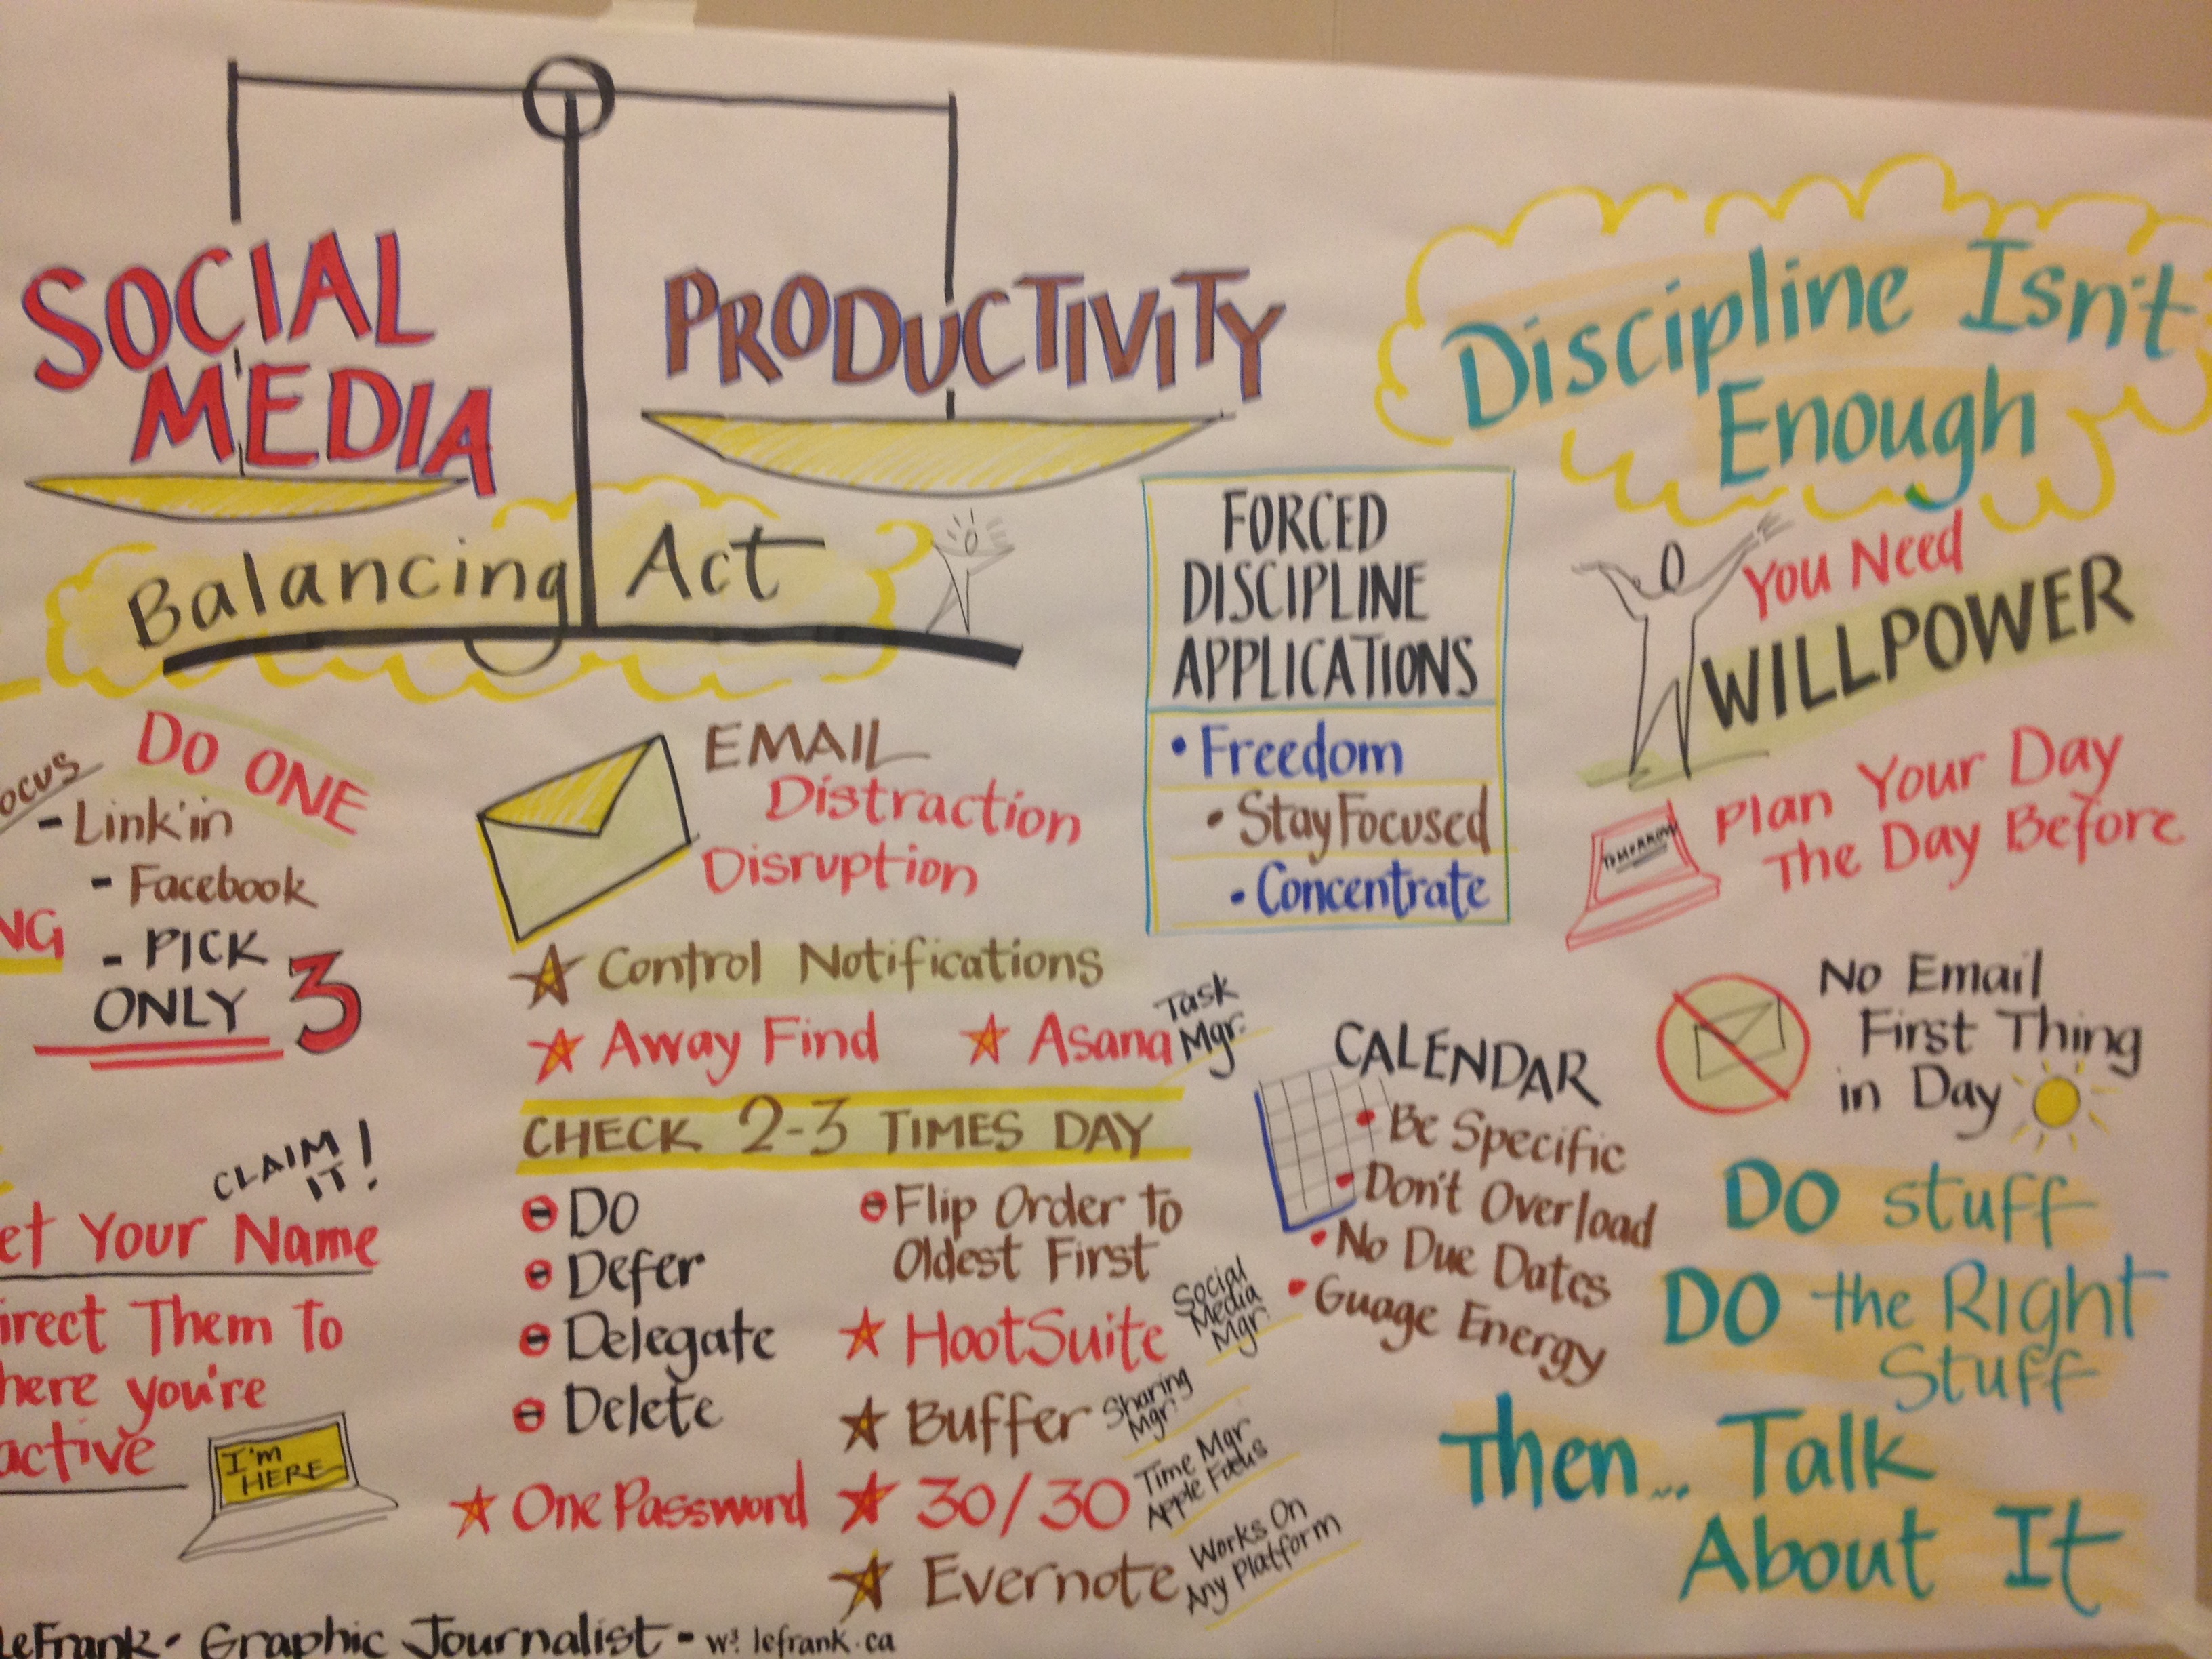 SOCIAL
MEDIA
PRODUCTIVITY
Balancing Act
Discipline Isn't
Enough
You Need
WILLPOWER
FORCED
DISCIPLINE
APPLICATIONS
• Freedom
• StayFocused
• Concentrate
TOMORROW
Plan Your Day
The Day Before
No Email
First Thing
in Day
DO stuff
DO the Right
Stuff
Then... Talk
About It
ocus
DO ONE
- Link'in
- Facebook
NG
- PICK
ONLY 3
CLAIM
IT!
et Your Name
irect Them To
here you're
active
I'm
HERE
EMAIL
Distraction
Disruption
Control Notifications
Away Find
Asana
Task
Mgr.
CHECK 2-3 TIMES DAY
DO
Defer
Delegate
Delete
Flip Order to
Oldest First
HootSuite
Social
Media
Mgr.
Buffer
Sharing
Mgr.
One Password
30/30
Time Mgr
Apple Focus
Evernote
Works On
Any Platform
CALENDAR
• Be Specific
• Don't Overload
• No Due Dates
• Guage Energy
LeFrank • Graphic Journalist - w3 lefrank.ca